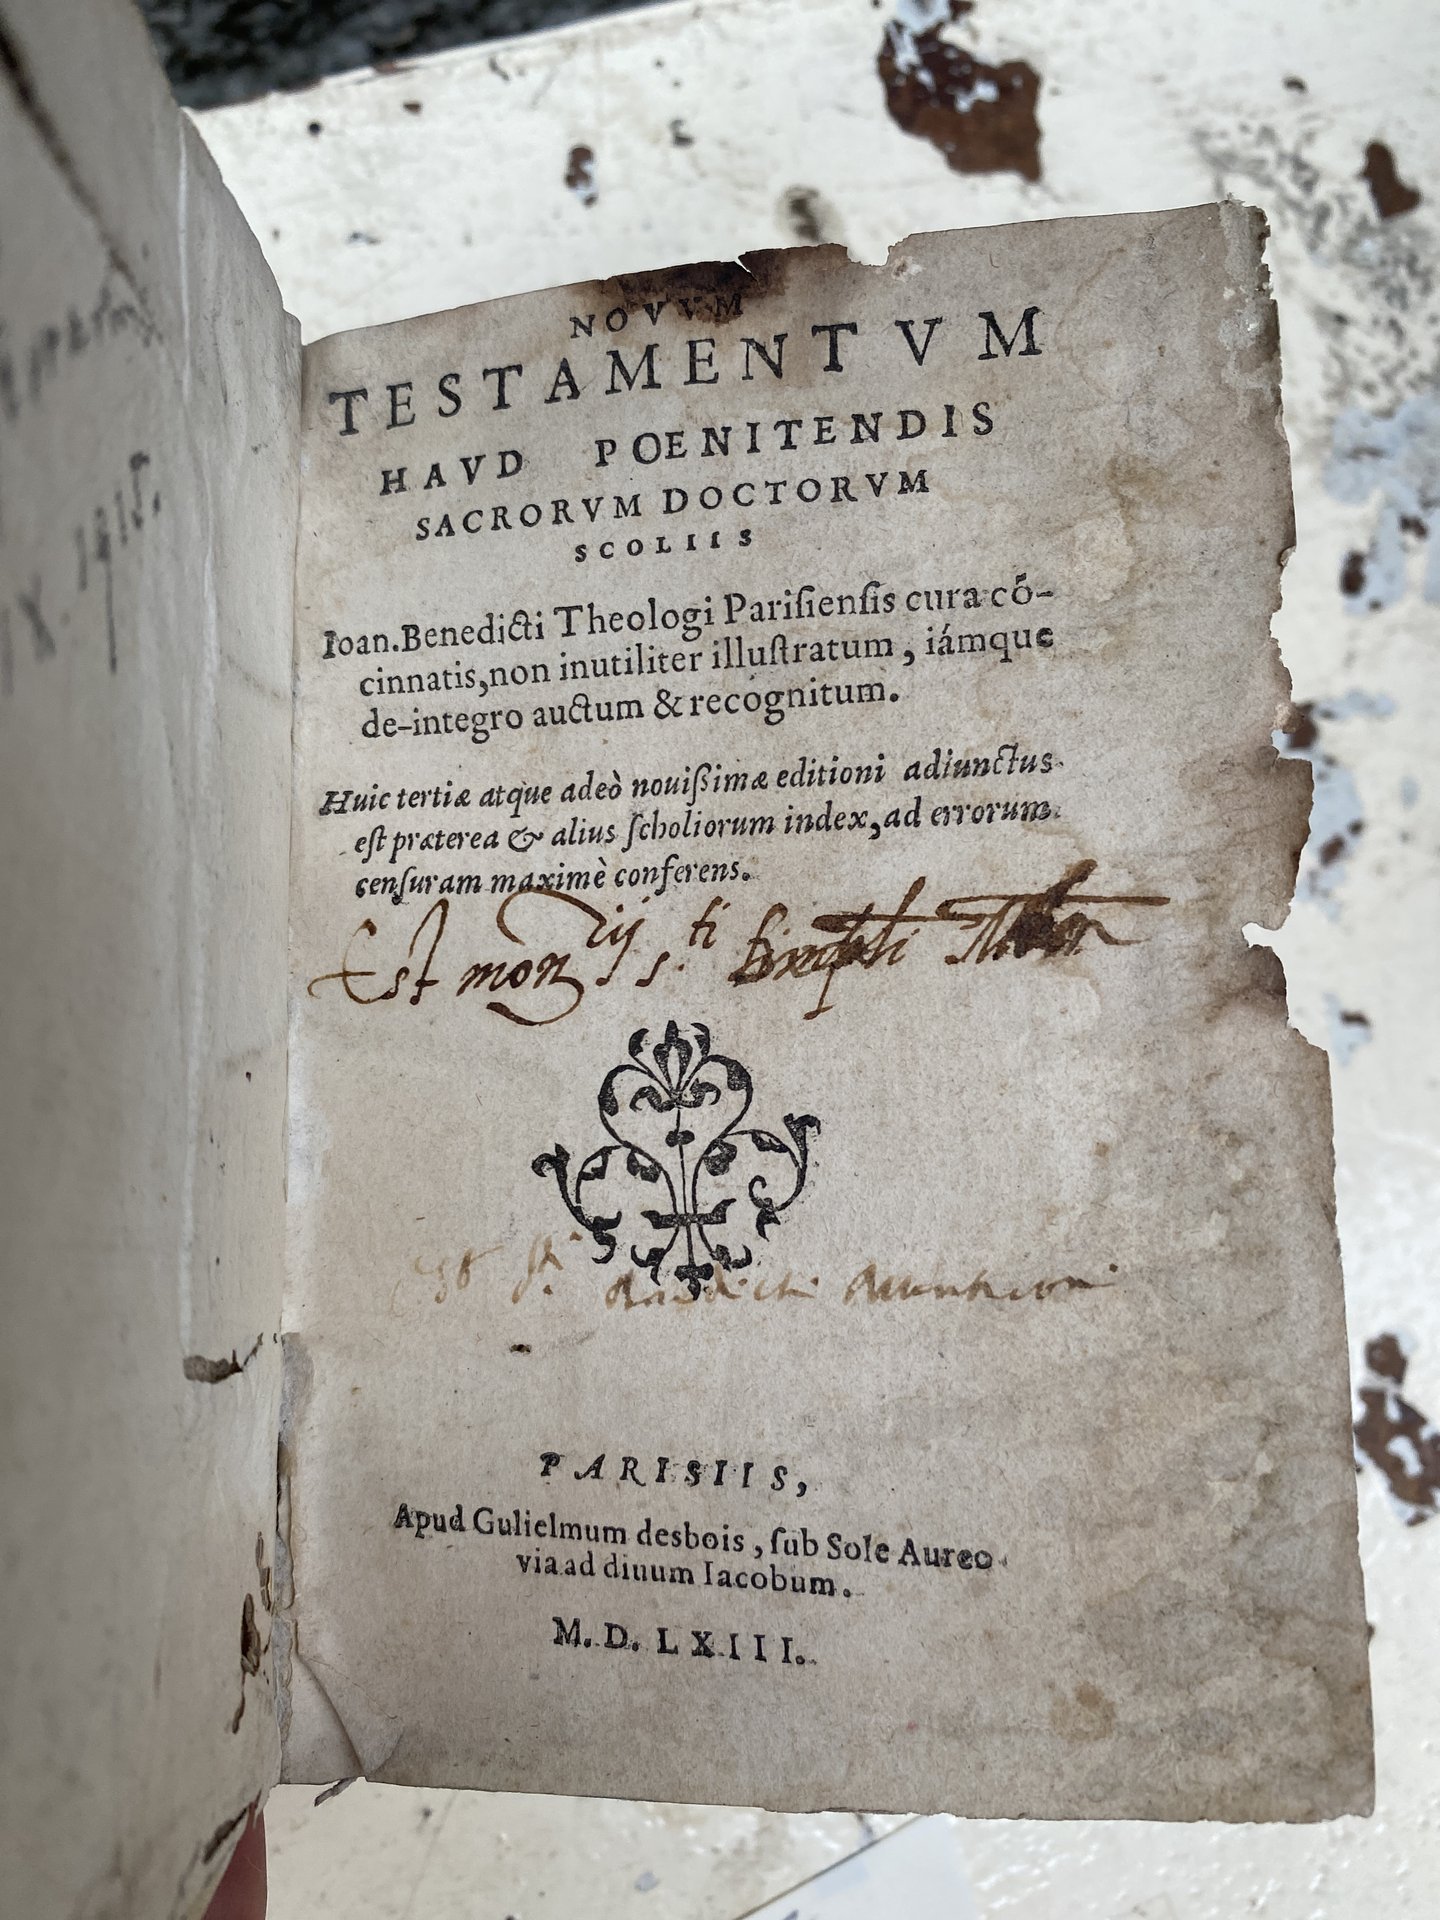 1915.
NOVVM
TESTAMENTVM
HAVD POENITENDIS
SACRORVM DOCTORVM
SCOLIIS
Ioan. Benedicti Theologi Pariſienſis cura cō-
cinnatis, non inutiliter illuſtratum, iámque
de-integro auctum & recognitum.
Huic tertiæ atque adeò nouiſsimæ editioni adiunctus
eſt præterea & alius ſcholiorum index, ad errorum
cenſuram maximè conferens.
Est mon s.ti
PARISIIS,
Apud Gulielmum desbois, ſub Sole Aureo
via ad diuum Iacobum.
M. D. LXIII.